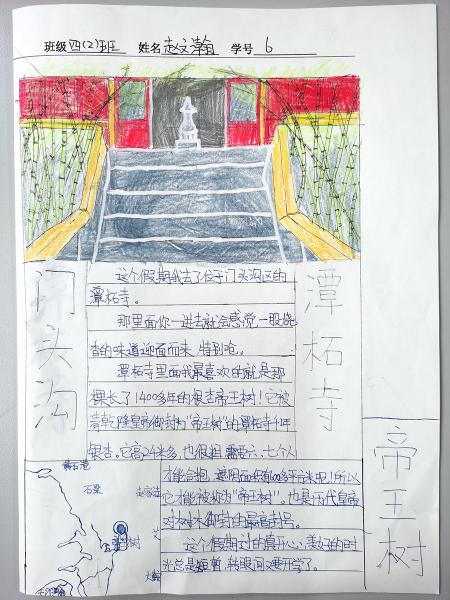 班级 四(2)班 姓名 赵文瀚 学号 6
门头沟
潭柘寺
这个假期我去了位于门头沟区的
潭柘寺。
那里面你一进去就会感觉一股烧
香的味道迎面而来，特别呛。
潭柘寺里面我最喜欢的就是那
棵长了1400多年的银杏帝王树！它被
清乾隆皇帝御封为“帝王树”的潭柘寺千年
银杏。它高24米多，也很粗 需要六、七个人
才能合抱，遮阴面积有600多平方米呢！所以
它才能被称为“帝王树”，也是历代皇帝
对树木御封的最高封号。
这个假期过的真开心，美好的时
光总是短暂，转眼间又要开学了。
帝王树
石梁